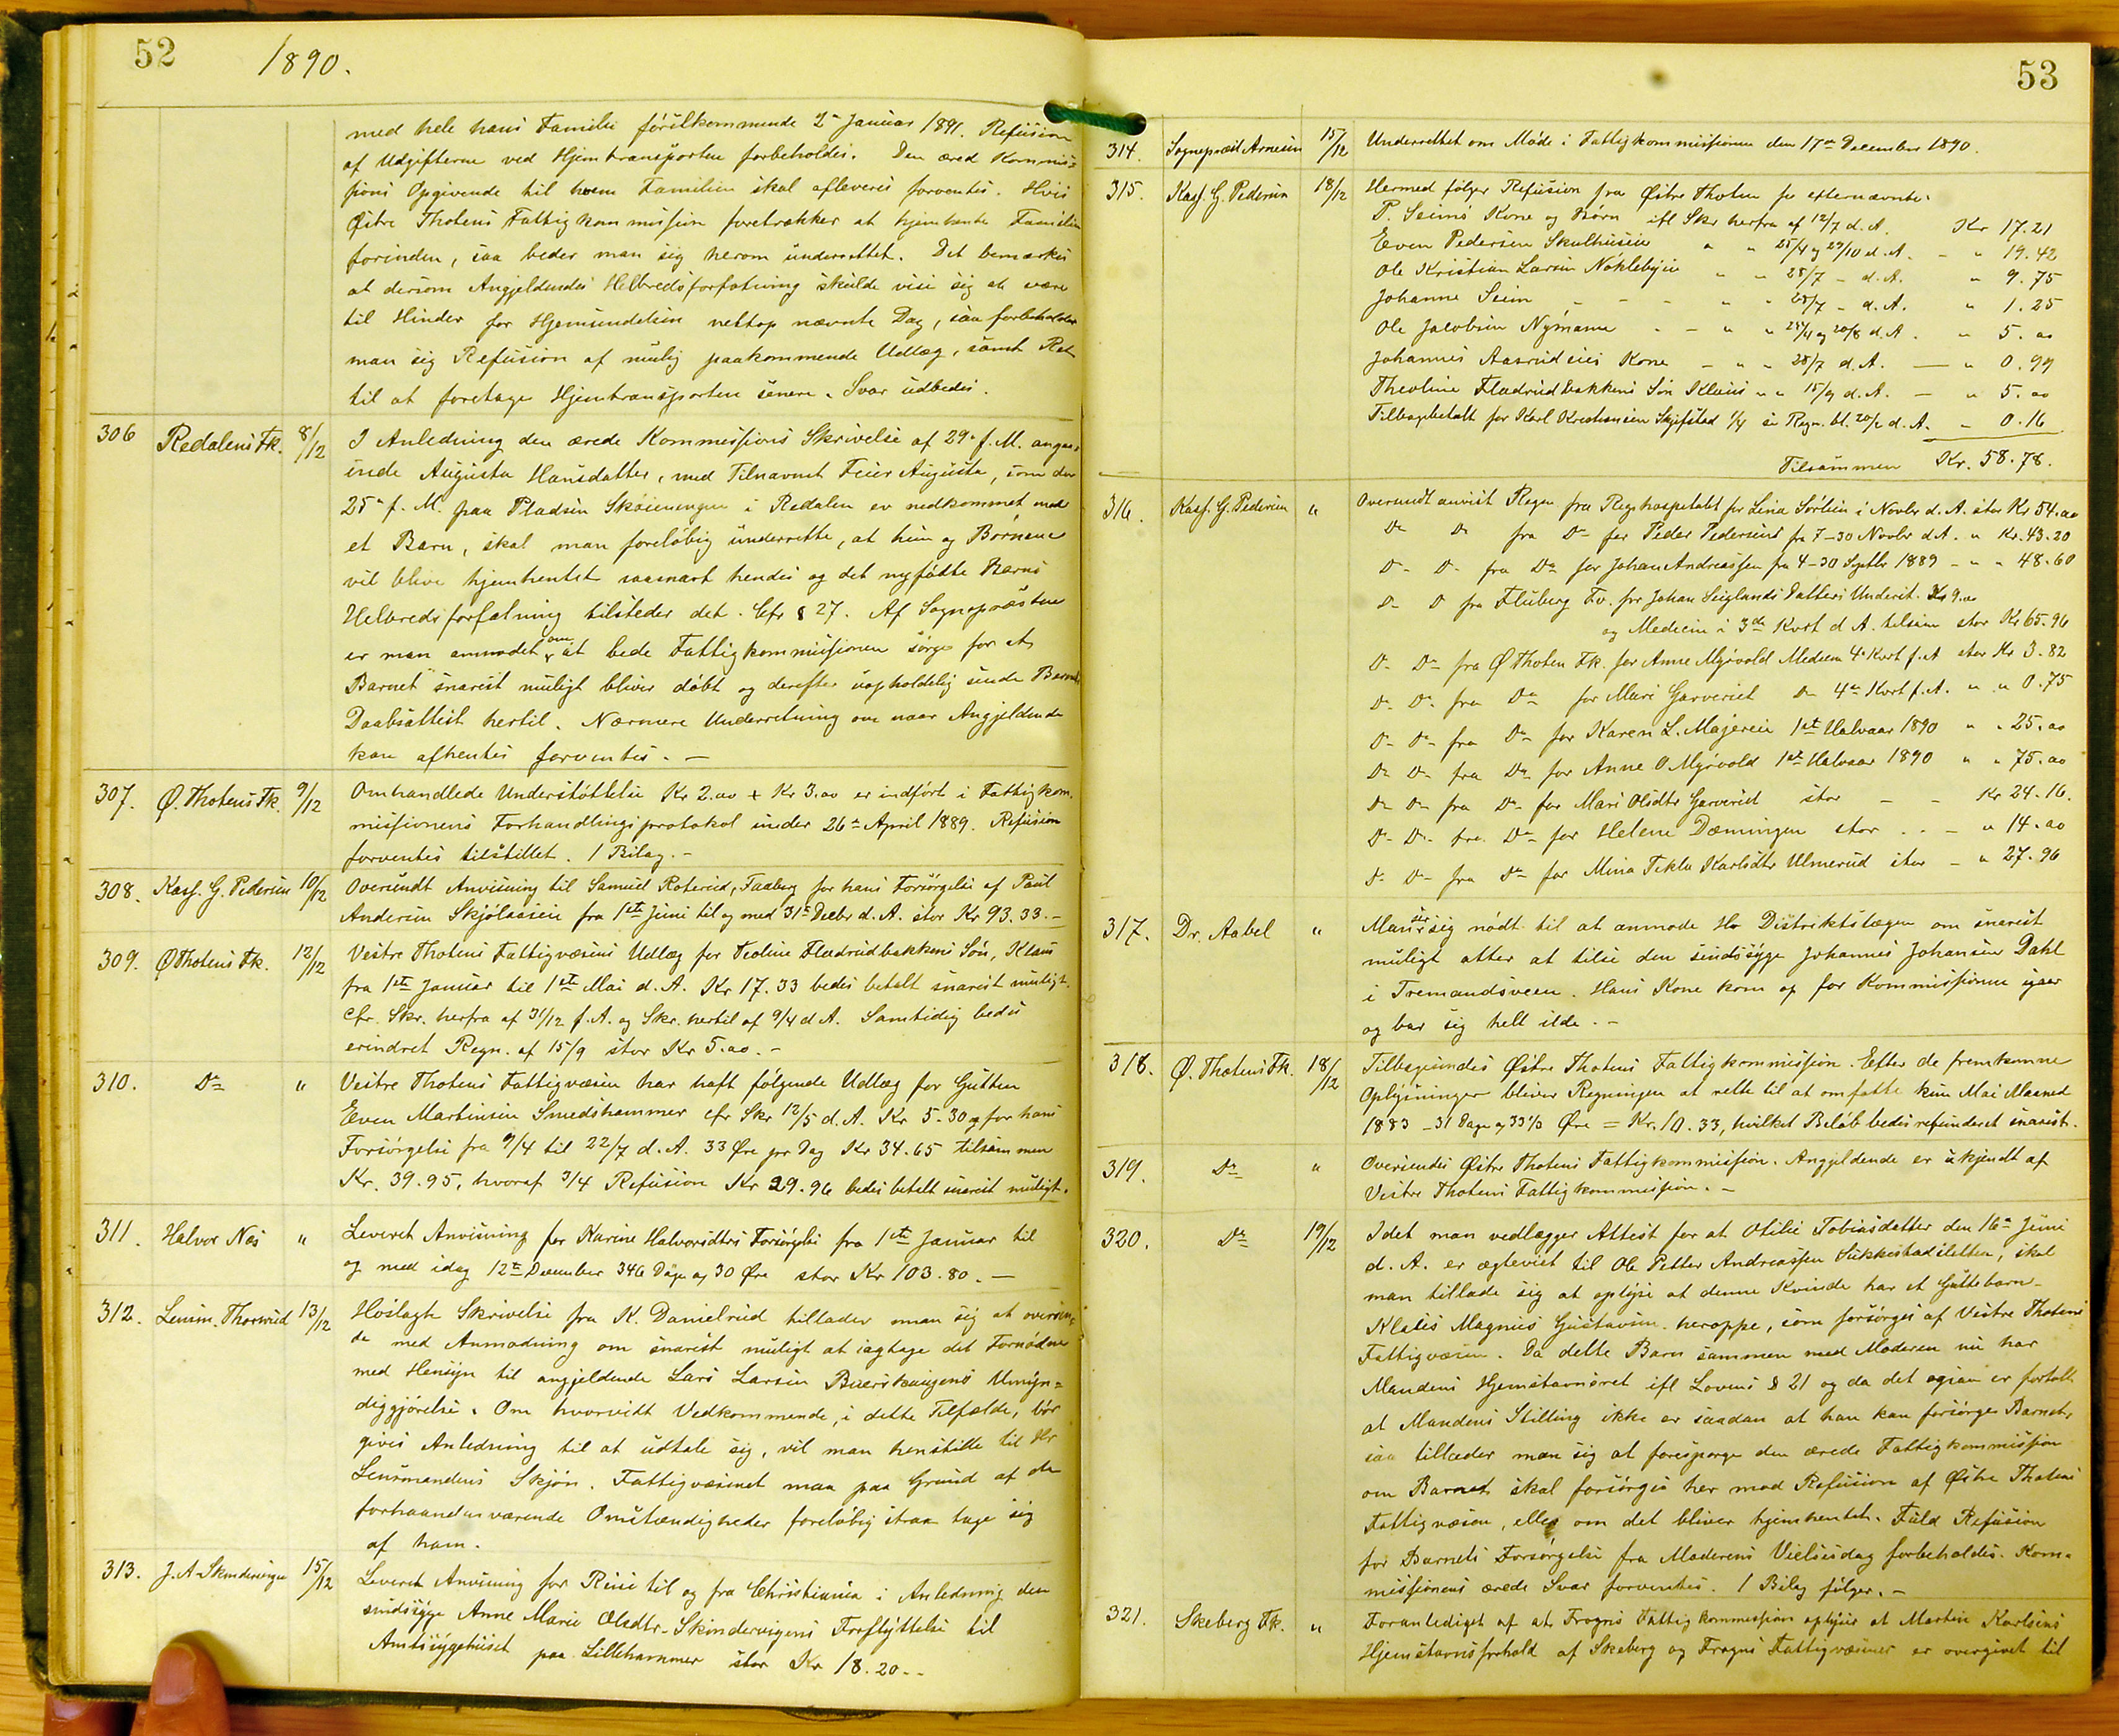 52
1890.
med hele hans Familie førstkommende 2den Januar 1891. Refusion
af Udgifterne ved Hjemtransporten forbeholdes. Den ærede Kommis=
sions Opgivende til hvem Familien skal afleveres forventes. Hvis
Østre Thotens Fattigkommission foretrækker at hjemhente Familien
forinden, saa beder man sig herom underrettet. Det bemærkes
at dersom Angjeldendes Helbredsforfatning skulde vise sig at være
til Hinder for Hjemsendelsen netop nævnte Dag, saa forbeholder
man sig Refusion af mulig paakommende Udlæg, samt Ret
til at foretage Hjemtransporten senere. Svar udbedes.
306 Redalens Fk. 8/12 I Anledning den ærede Kommissions Skrivelse af 29. f. M. angaa-
ende Augusta Hansdatter, med Tilnavnet Feier Augusta, som den
25de f. M. paa Pladsen Skøienengen i Redalen er nedkommet med
et Barn, skal man foreløbig underrette, at hun og Børnene
vil blive hjemhentet saasnart hendes og det nyfødte Barns
Helbredsforfatning tilsteder det. Cfr § 27. Af Sognepræsten
er man anmodet om at bede Fattigkommissionen sørge for at
Barnet snarest muligt bliver døbt og derefter uopholdelig sende Barnets
Daabsattest hertil. Nærmere Underretning om naar Angjeldende
kan afhentes forventes. —
307. Ø. Thotens Fk. 9/12 Omhandlede Understøttelse Kr 2.00 + Kr 3.00 er indført i Fattigkom-
missionens Forhandlingsprotokol under 26de April 1889. Refusion
forventes tilstillet. 1 Bilag. –
308. Kass. G. Pedersen 10/12 Oversendt Anvisning til Samuel Roterud, Faaberg for hans Forsørgelse af Paul
Andersen Skjølaasen fra 1ste Juni til og med 31te Decbr d. A. stor Kr 93.33. –
309. Ø Thotens Fk. 12/12 Vestre Thotens Fattigvæsens Udlæg for Teoline Fladrudbakkens Søn, Klaus
fra 1ste Januar til 1ste Mai d. A. Kr 17.33 bedes betalt snarest muligt.
Cfr. Skr. herfra af 31/12 f. A. og Skr. hertil af 9/4 d A. Samtidig bedes
erindret Regn. af 15/9 stor Kr 5.00. –
310. Do " Vestre Thotens Fattigvæsen har haft følgende Udlæg for Gutten
Even Martinsen Smedshammer cfr Skr 12/5 d. A. Kr 5.30 og for hans
Forsørgelse fra 9/4 til 22/7 d. A. 33 Øre pr Dag Kr 34.65 tilsammen
Kr. 39.95, hvoraf 3/4 Refusion Kr 29.96 bedes betalt snarest muligt.
311. Halvor Næs " Leveret Anvisning for Karine Halvorsdtrs Forsørgelse fra 1ste Januar til
og med idag 12te December 346 Dage og 30 Øre stor Kr 103.80. —
312. Lensm. Thorsrud 13/12 Hoslagte Skrivelse fra K. Danielsrud tillader man sig at oversen-
de med Anmodning om snarest muligt at iagtage det Fornødne
med Hensyn til angjeldende Lars Larsen Buerskaugens Umyn=
diggjørelse. Om hvorvidt Vedkommende, i dette Tilfælde, bør
gives Anledning til at udtale sig, vil man henstille til Hr
Lensmandens Skjøn. Fattigvæsenet maa paa Grund af de
forhaandenværende Omstændigheder foreløbig straa tage sig
af ham.
313. J. A. Skindervigen 15/12 Leveret Anvisning for Reise til og fra Christiania i Anledning den
sindssyge Anne Marie Olsdtr. Skindervigens Fraflyttelse til
Amtssygehuset paa Lillehammer stor Kr 18.20. –
53
314. Sognepræst Arnesen 15/12 Underrettet om Møde i Fattigkommissionen den 17de December 1890.
315. Kass. G. Pedersen 18/12 Hermed følger Refusion fra Østre Thoten for efternævnte:
P. Seims Kone og Børn ifl Skr herfra af 12/7 d. A. Kr 17.21
Even Pedersen Skulhuseie " " 25/4 og 29/10 d. A. – " 19.42
Ole Kristian Larsen Nøklebyeie " " 28/7 – d. A. " 9.75
Johanne Seim – – – " " 28/7 – d. A. " 1.25
Ole Jacobsen Nymann – – " " 24/4 og 20/8 d. A. " 5.00
Johannes Aasrudeies Kone – " " 28/7 d. A. — " 0.99
Theoline Fladrudbakkens Søn Klaus " " 15/9 d. A. — " 5.00
Tilbagebetalt for Karl Kristiansen Skjefstad 1/4 se Regn. bl. 20/2 d. A. " 0.16
Tilsammen Kr. 58.78.
316. Kass. G. Pedersen " Oversendt anvist Regn fra Rigshospitalet for Lina Sørlien i Novbr d. A. stor Kr 54.00
Do Do fra Do for Peder Pedersens fra 7–30 Novbr d A. " Kr. 43.20
Do Do fra Do for Johan Andreassen fra 4–30 Septbr 1889 – " " 48.60
Do Do fra Fluberg Fv. for Johan Seiglands Datters Underst. Kr 9.00
og Medicin i 3de Kvrt d A. tilsam stor Kr 65.96
Do Do fra Ø Thoten Fk. for Anne Myrvold Medicin 4de Kvrt f. A stor Kr 3.82
Do Do fra Do for Mari Garveriet Do 4de Kvrt f. A. " " 0.75
Do Do fra Do for Karen L. Majereie 1ste Halvaar 1890 " " 25.00
Do Do fra Do for Anne O Myrvold 1ste Halvaar 1890 " " 75.00
Do Do fra Do for Mari Olsdtr Garveriet stor – – Kr 24.16.
Do Do fra Do for Helene Dæmningen stor . . – " 14.00
Do Do fra Do for Mina Tekla Karlsdtr Ulmerud stor – " 27.96
317. Dr. Aabel " Man ser sig nødt til at anmode Hr Distriktslægen om snarest
muligt atter at tilse den sindssyge Johannes Johansen Dahl
i Tremandsveen. Hans Kone kom op for Kommissionen igaar
og bar sig helt ilde. –
318. Ø. Thotens Fk. 18/12 Tilbagesendes Østre Thotens Fattigkommission. Efter de fremkomne
Oplysninger bliver Regningen at rette til at omfatte kun Mai Maaned
1883 – 31 Dage og 33 1/3 Øre = Kr. 10.33, hvilket Beløb bedes refunderet snarest.
319. Do " Oversendes Østre Thotens Fattigkommission. Angjeldende er ukjendt af
Vestre Thotens Fattigkommission. –
320. Do 19/12 Idet man vedlægger Attest for at Otilie Tobiasdatter den 16de Juni
d. A. er ægteviet til Ole Petter Andreassen Sukkestadsletten, skal
man tillade sig at oplyse at denne Kvinde har et Guttebarn
Klaus Magnus Gustavsen heroppe, som forsørges af Vestre Thotens
Fattigvæsen. Da dette Barn sammen med Moderen nu har
Mandens Hjemstavnsret ifl Lovens § 21 og da det ogsaa er fortalt
at Mandens Stilling ikke er saadan at han kan forsørge Barnet,
saa tillader man sig at forespørge den ærede Fattigkommission
om Barnet skal forsørges her mod Refusion af Østre Thotens
Fattigvæsen, eller om det bliver hjemhentet. Fuld Refusion
for Barnets Forsørgelse fra Moderens Vielsesdag forbeholdes. Kom-
missionens ærede Svar forventes. 1 Bilag følger. –
321. Skeberg Fk. " Foranlediget af at Frogns Fattigkommission oplyser at Martin Karlsens
Hjemstavnsforhold af Skeberg og Frogns Fattigvæsener er overgivet til